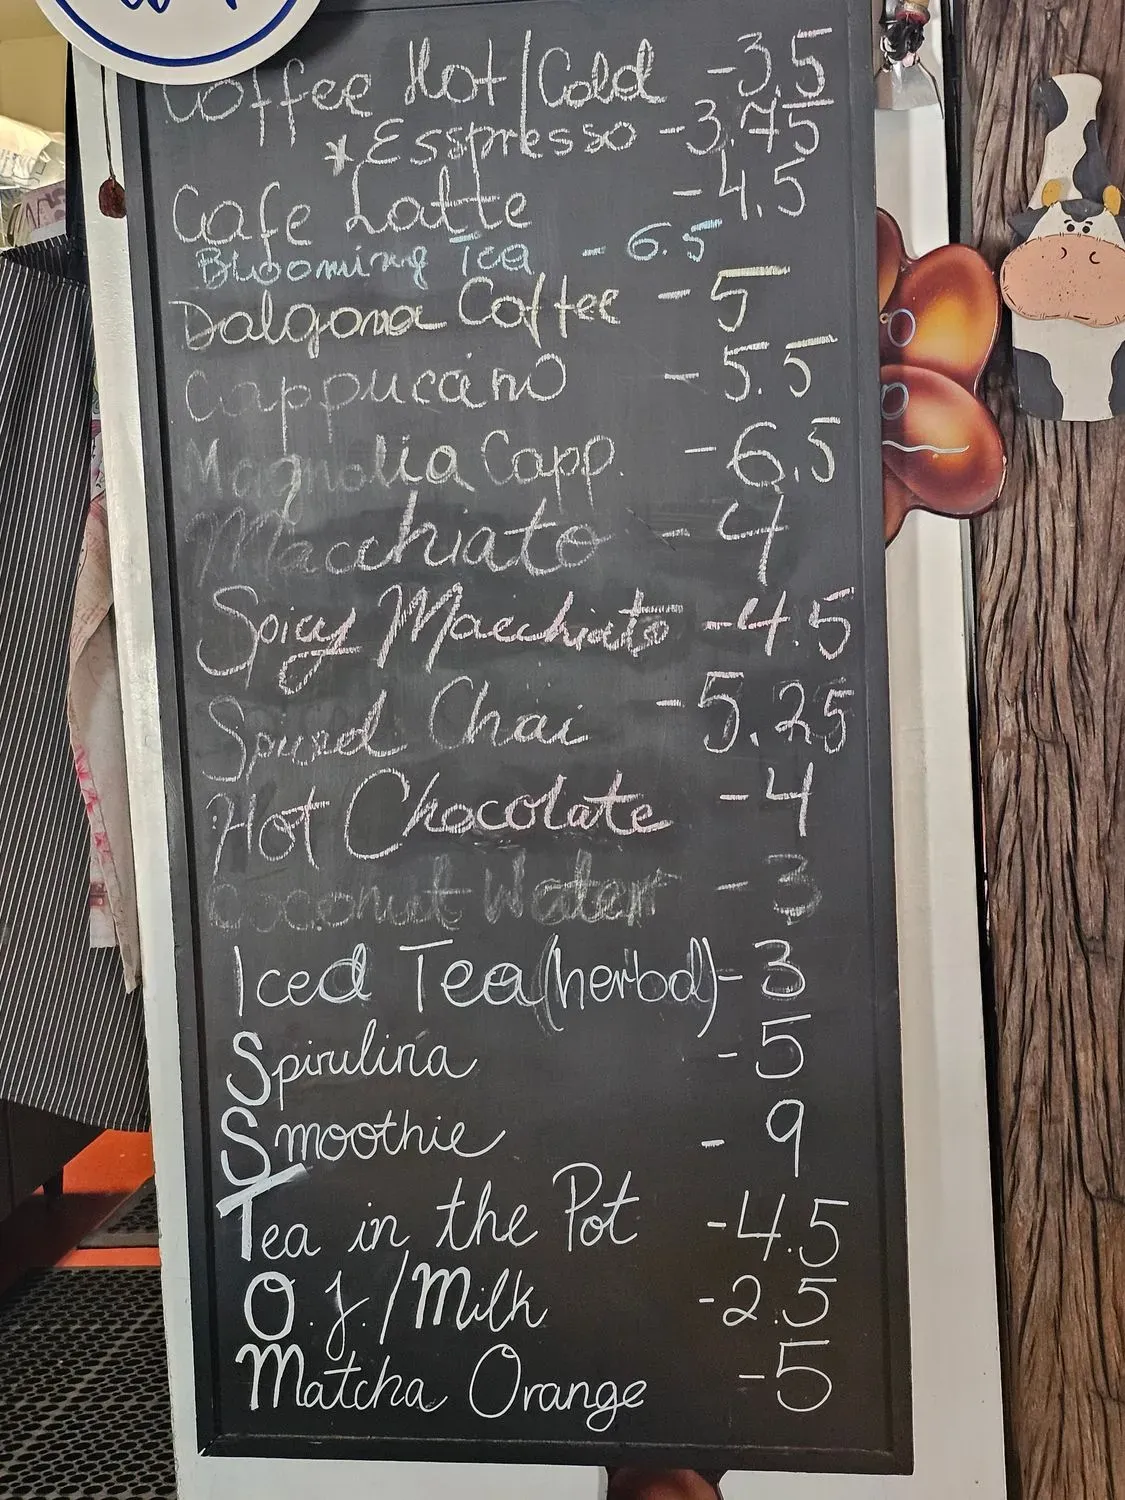 Coffee Hot/Cold - 3.5
* Esspresso - 3.75
Cafe Latte - 4.5
Blooming Tea - 6.5
Dalgona Coffee - 5
Cappucino - 5.5
Magnolia Capp. - 6.5
Macchiato - 4
Spicy Macchiato - 4.5
Spiced Chai - 5.25
Hot Chocolate - 4
Coconut Water - 3
Iced Tea (herbal) - 3
Spirulina - 5
Smoothie - 9
Tea in the Pot - 4.5
O.J./Milk - 2.5
Matcha Orange - 5